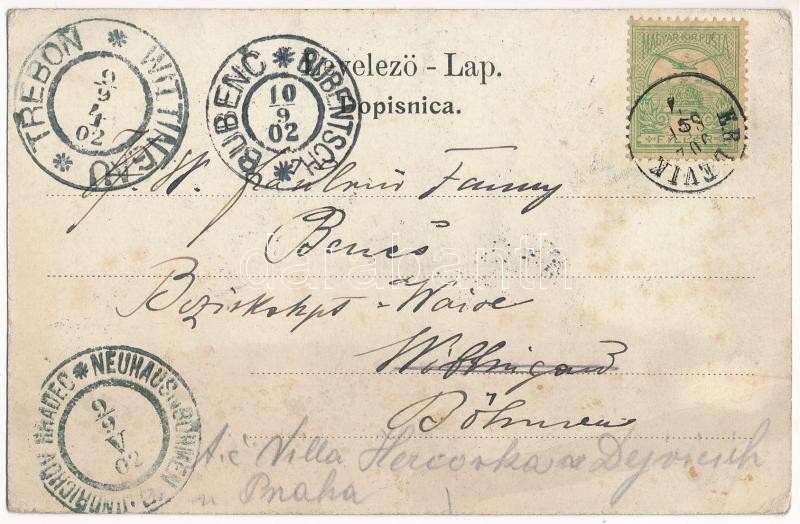 TŘEBOŇ * WITTINGAU *
9/9 02
BUBENČ * BUBENTSCH *
10/9 02
Levelező - Lap.
Dopisnica.
MAGYAR KIR. POSTA
ERDEVIK
Fräulein Fanny
Beneš
Wittingau
Böhmen
NEUHAUS in BÖHMEN JINDŘICHŮV HRADEC *
9/9 02
Villa Hercovka v Dejvicích
u Praha
darabanth